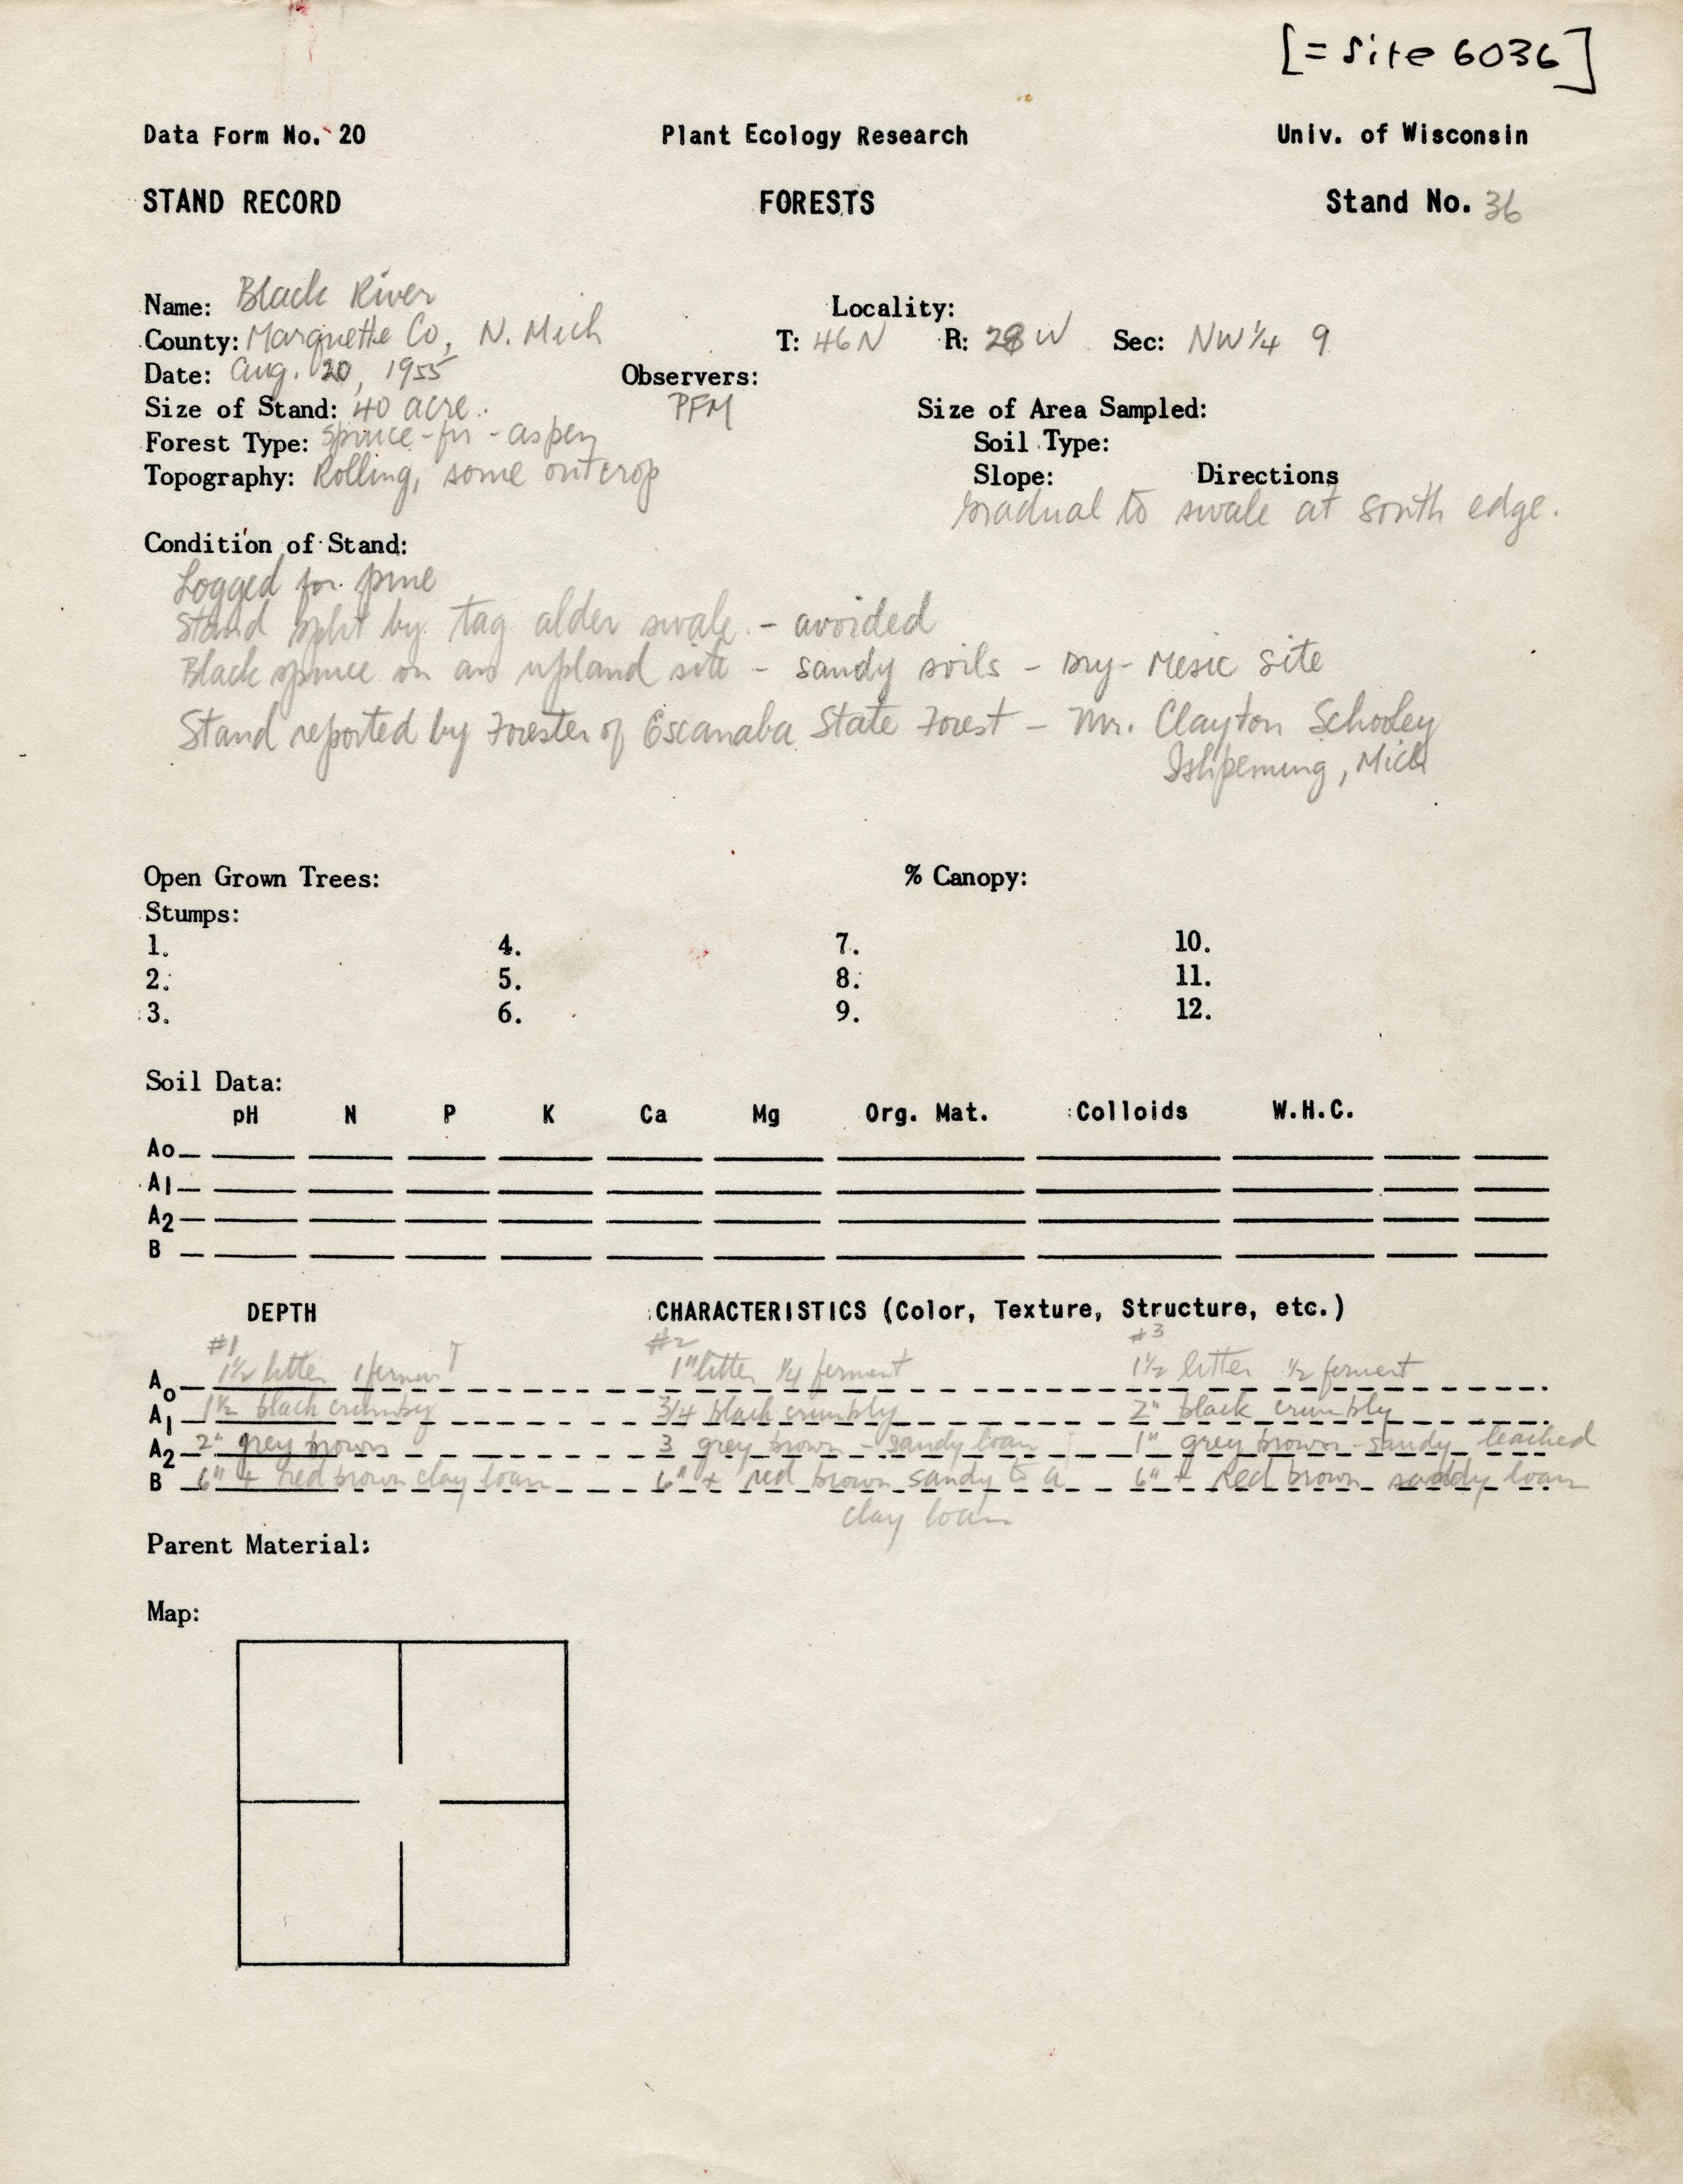 [= Site 6036]
Data Form No. 20 Plant Ecology Research Univ. of Wisconsin
STAND RECORD FORESTS Stand No. 36
Name: Black River Locality:
County: Marquette Co, N. Mich T: 46N R: 28W Sec: NW 1/4 9
Date: Aug. 20, 1955 Observers:
Size of Stand: 40 acre. PFM Size of Area Sampled:
Forest Type: Spruce-fir-aspen Soil Type:
Topography: Rolling, some outcrop Slope: Directions
Gradual to swale at south edge.
Condition of Stand:
Logged for pine
Stand split by tag alder swale. - avoided
Black spruce on an upland site - sandy soils - Dry-Mesic site
Stand reported by Forester of Escanaba State Forest - Mr. Clayton Schooley
Ishpeming, Mich
Open Grown Trees: % Canopy:
Stumps:
1. 4. 7. 10.
2. 5. 8. 11.
3. 6. 9. 12.
Soil Data:
pH N P K Ca Mg Org. Mat. Colloids W.H.C.
Ao
A1
A2
B
DEPTH CHARACTERISTICS (Color, Texture, Structure, etc.)
#1 #2 #3
Ao 1 1/2 litter 1 ferment 1" litter 1/4 ferment 1 1/2 litter 1/2 ferment
A1 1 1/2 black crumbly 3/4 black crumbly 2" black crumbly
A2 2" grey brown 3 grey brown - sandy loam 1" grey brown - sandy leached
B 6" + red brown clay loam 6" + red brown sandy to a 6" + red brown sandy loam
clay loam
Parent Material:
Map: